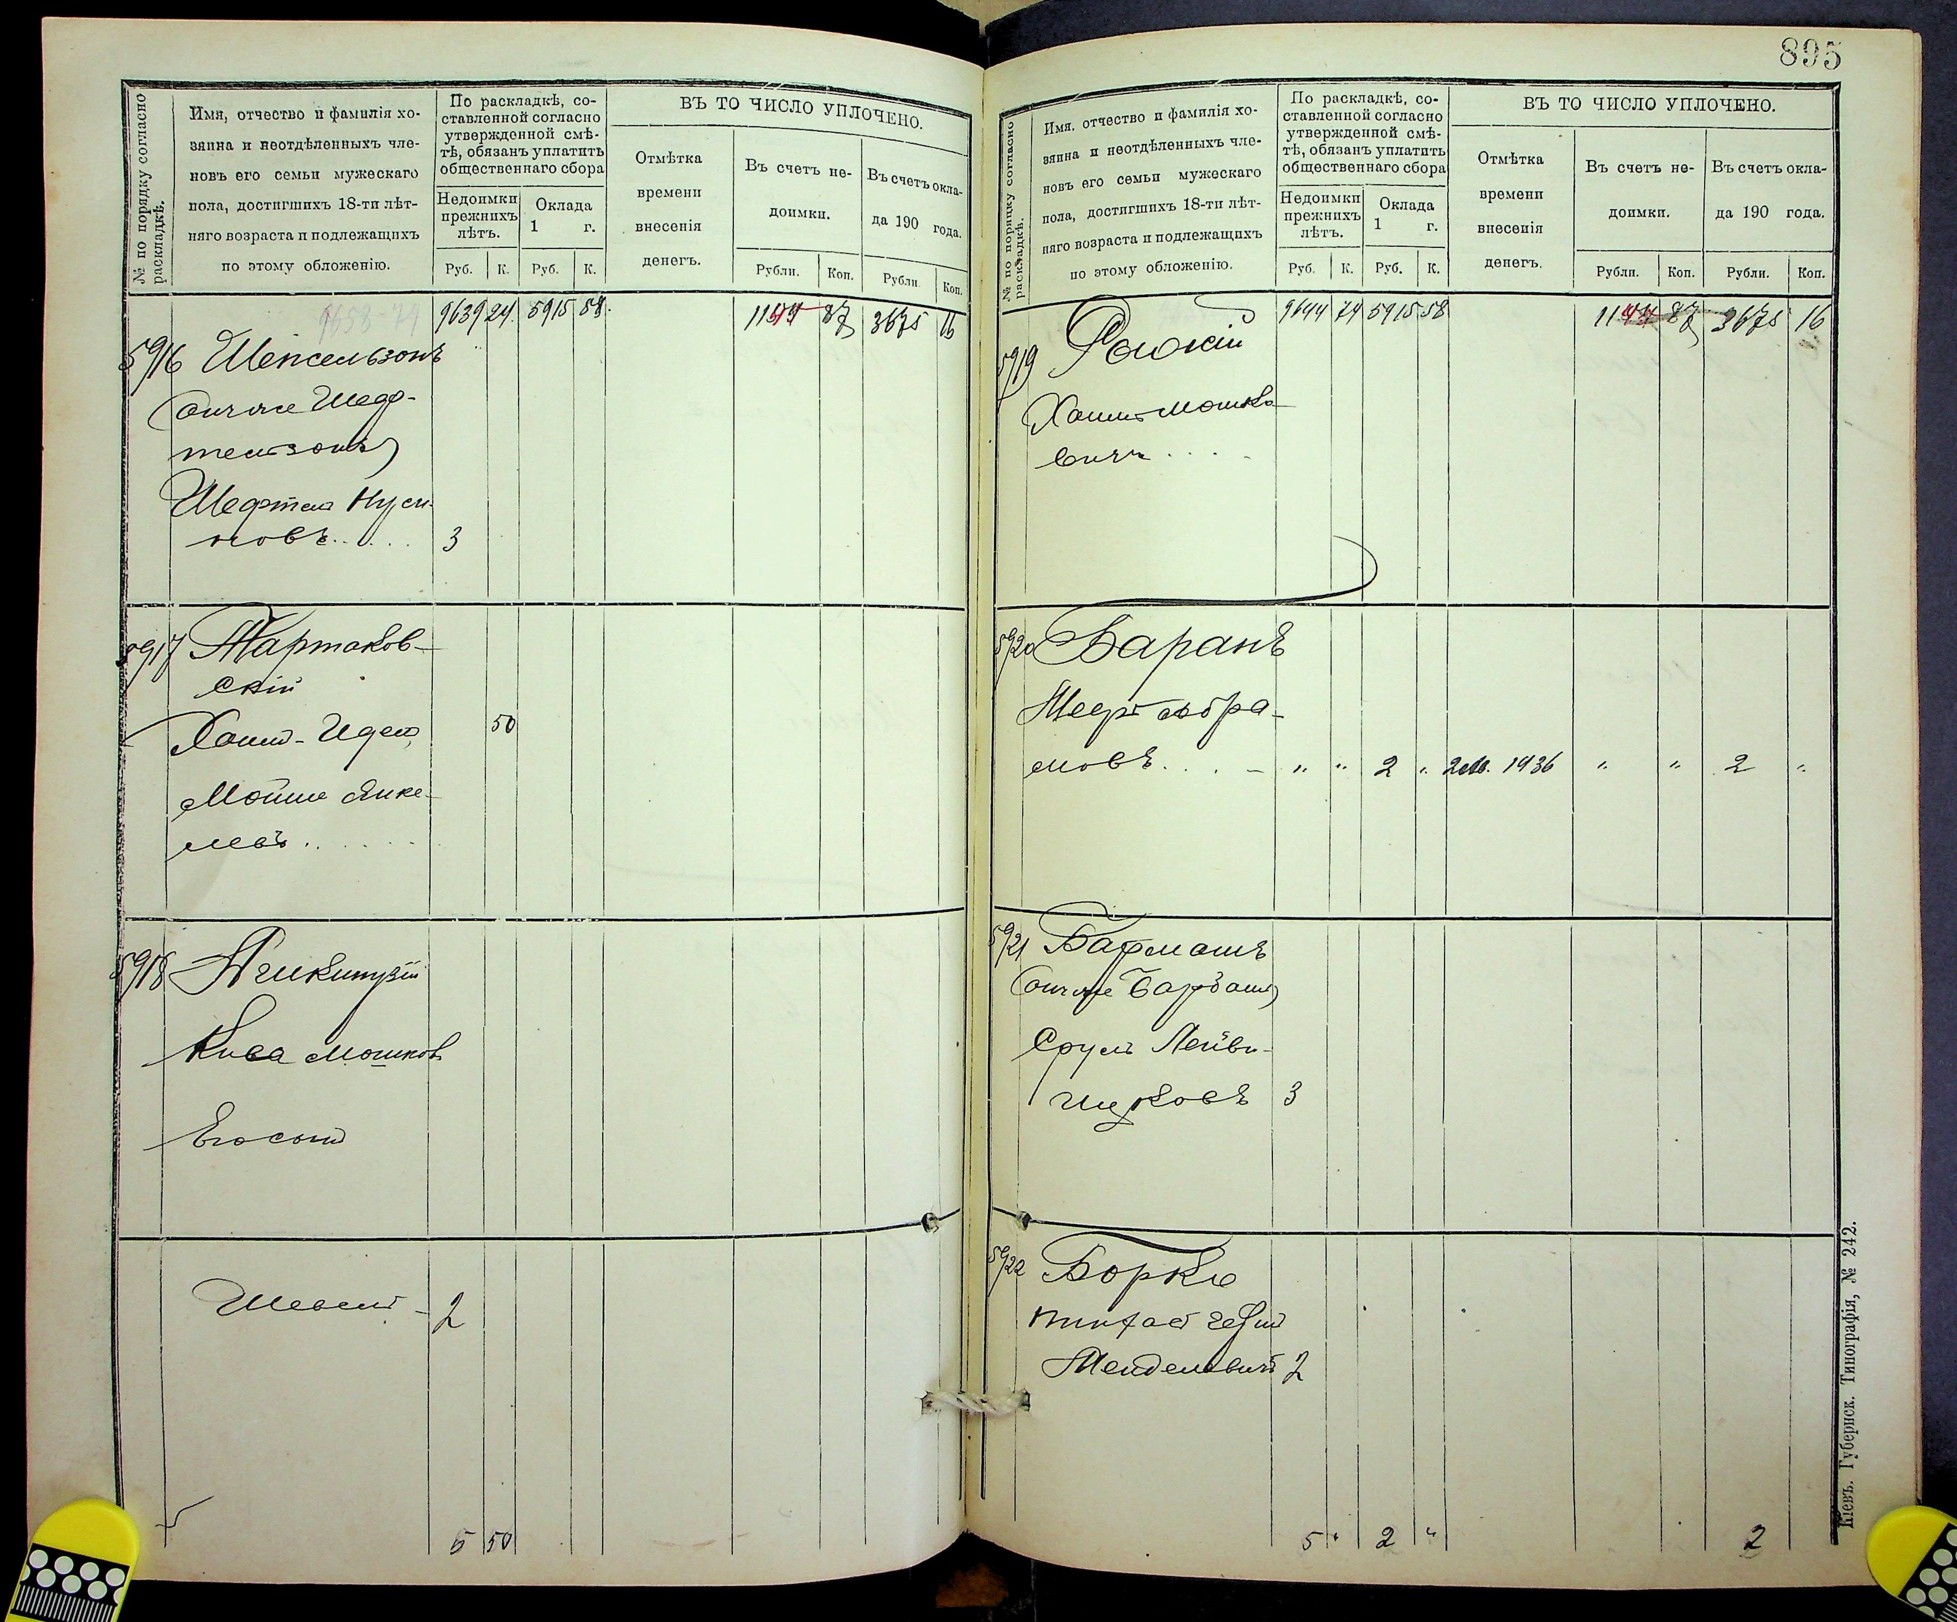 895
№ по порядку согласно раскладкѣ.
Имя, отчество и фамилія хо-
зяина и неотдѣленныхъ чле-
новъ его семьи мужескаго
пола, достигшихъ 18-ти лѣт-
няго возраста и подлежащихъ
по этому обложенію.
По раскладкѣ, со-
ставленной согласно
утвержденной смѣ-
тѣ, обязанъ уплатить
общественнаго сбора
Недоимки
прежнихъ
лѣтъ.
Оклада
1 г.
Руб. К. Руб. К.
ВЪ ТО ЧИСЛО УПЛОЧЕНО.
Отмѣтка
времени
внесенія
денегъ.
Въ счетъ не-
доимки.
Въ счетъ окла-
да 190 года.
Рубли. Коп. Рубли. Коп.
9658-74
9639 24 5915 58 87 3675 16
5916 Шепсельзонъ
Шефтел Нуси-
новъ..... 3
5917 Тартаков-
скій
Хаим-Идел 50
Мойше Янке-
левъ......
5918
Кива Мошков
Шевел - 2
5 50
№ по порядку согласно раскладкѣ.
Имя, отчество и фамилія хо-
зяина и неотдѣленныхъ чле-
новъ его семьи мужескаго
пола, достигшихъ 18-ти лѣт-
няго возраста и подлежащихъ
по этому обложенію.
По раскладкѣ, со-
ставленной согласно
утвержденной смѣ-
тѣ, обязанъ уплатить
общественнаго сбора
Недоимки
прежнихъ
лѣтъ.
Оклада
1 г.
Руб. К. Руб. К.
ВЪ ТО ЧИСЛО УПЛОЧЕНО.
Отмѣтка
времени
внесенія
денегъ.
Въ счетъ не-
доимки.
Въ счетъ окла-
да 190 года.
Рубли. Коп. Рубли. Коп.
9644 74 5915 58 87 3675 16
5919
Хаим Мошко-
вичъ . . . .
5920 Баранъ
Абра-
мовъ. . . - " " 2 " 1936 " " 2 "
5921
Сруль Лейби-
3
5922
Пинхас
Менделевичъ 2
5 " 2 " 2
Кіевъ. Губернск. Типографія, № 242.